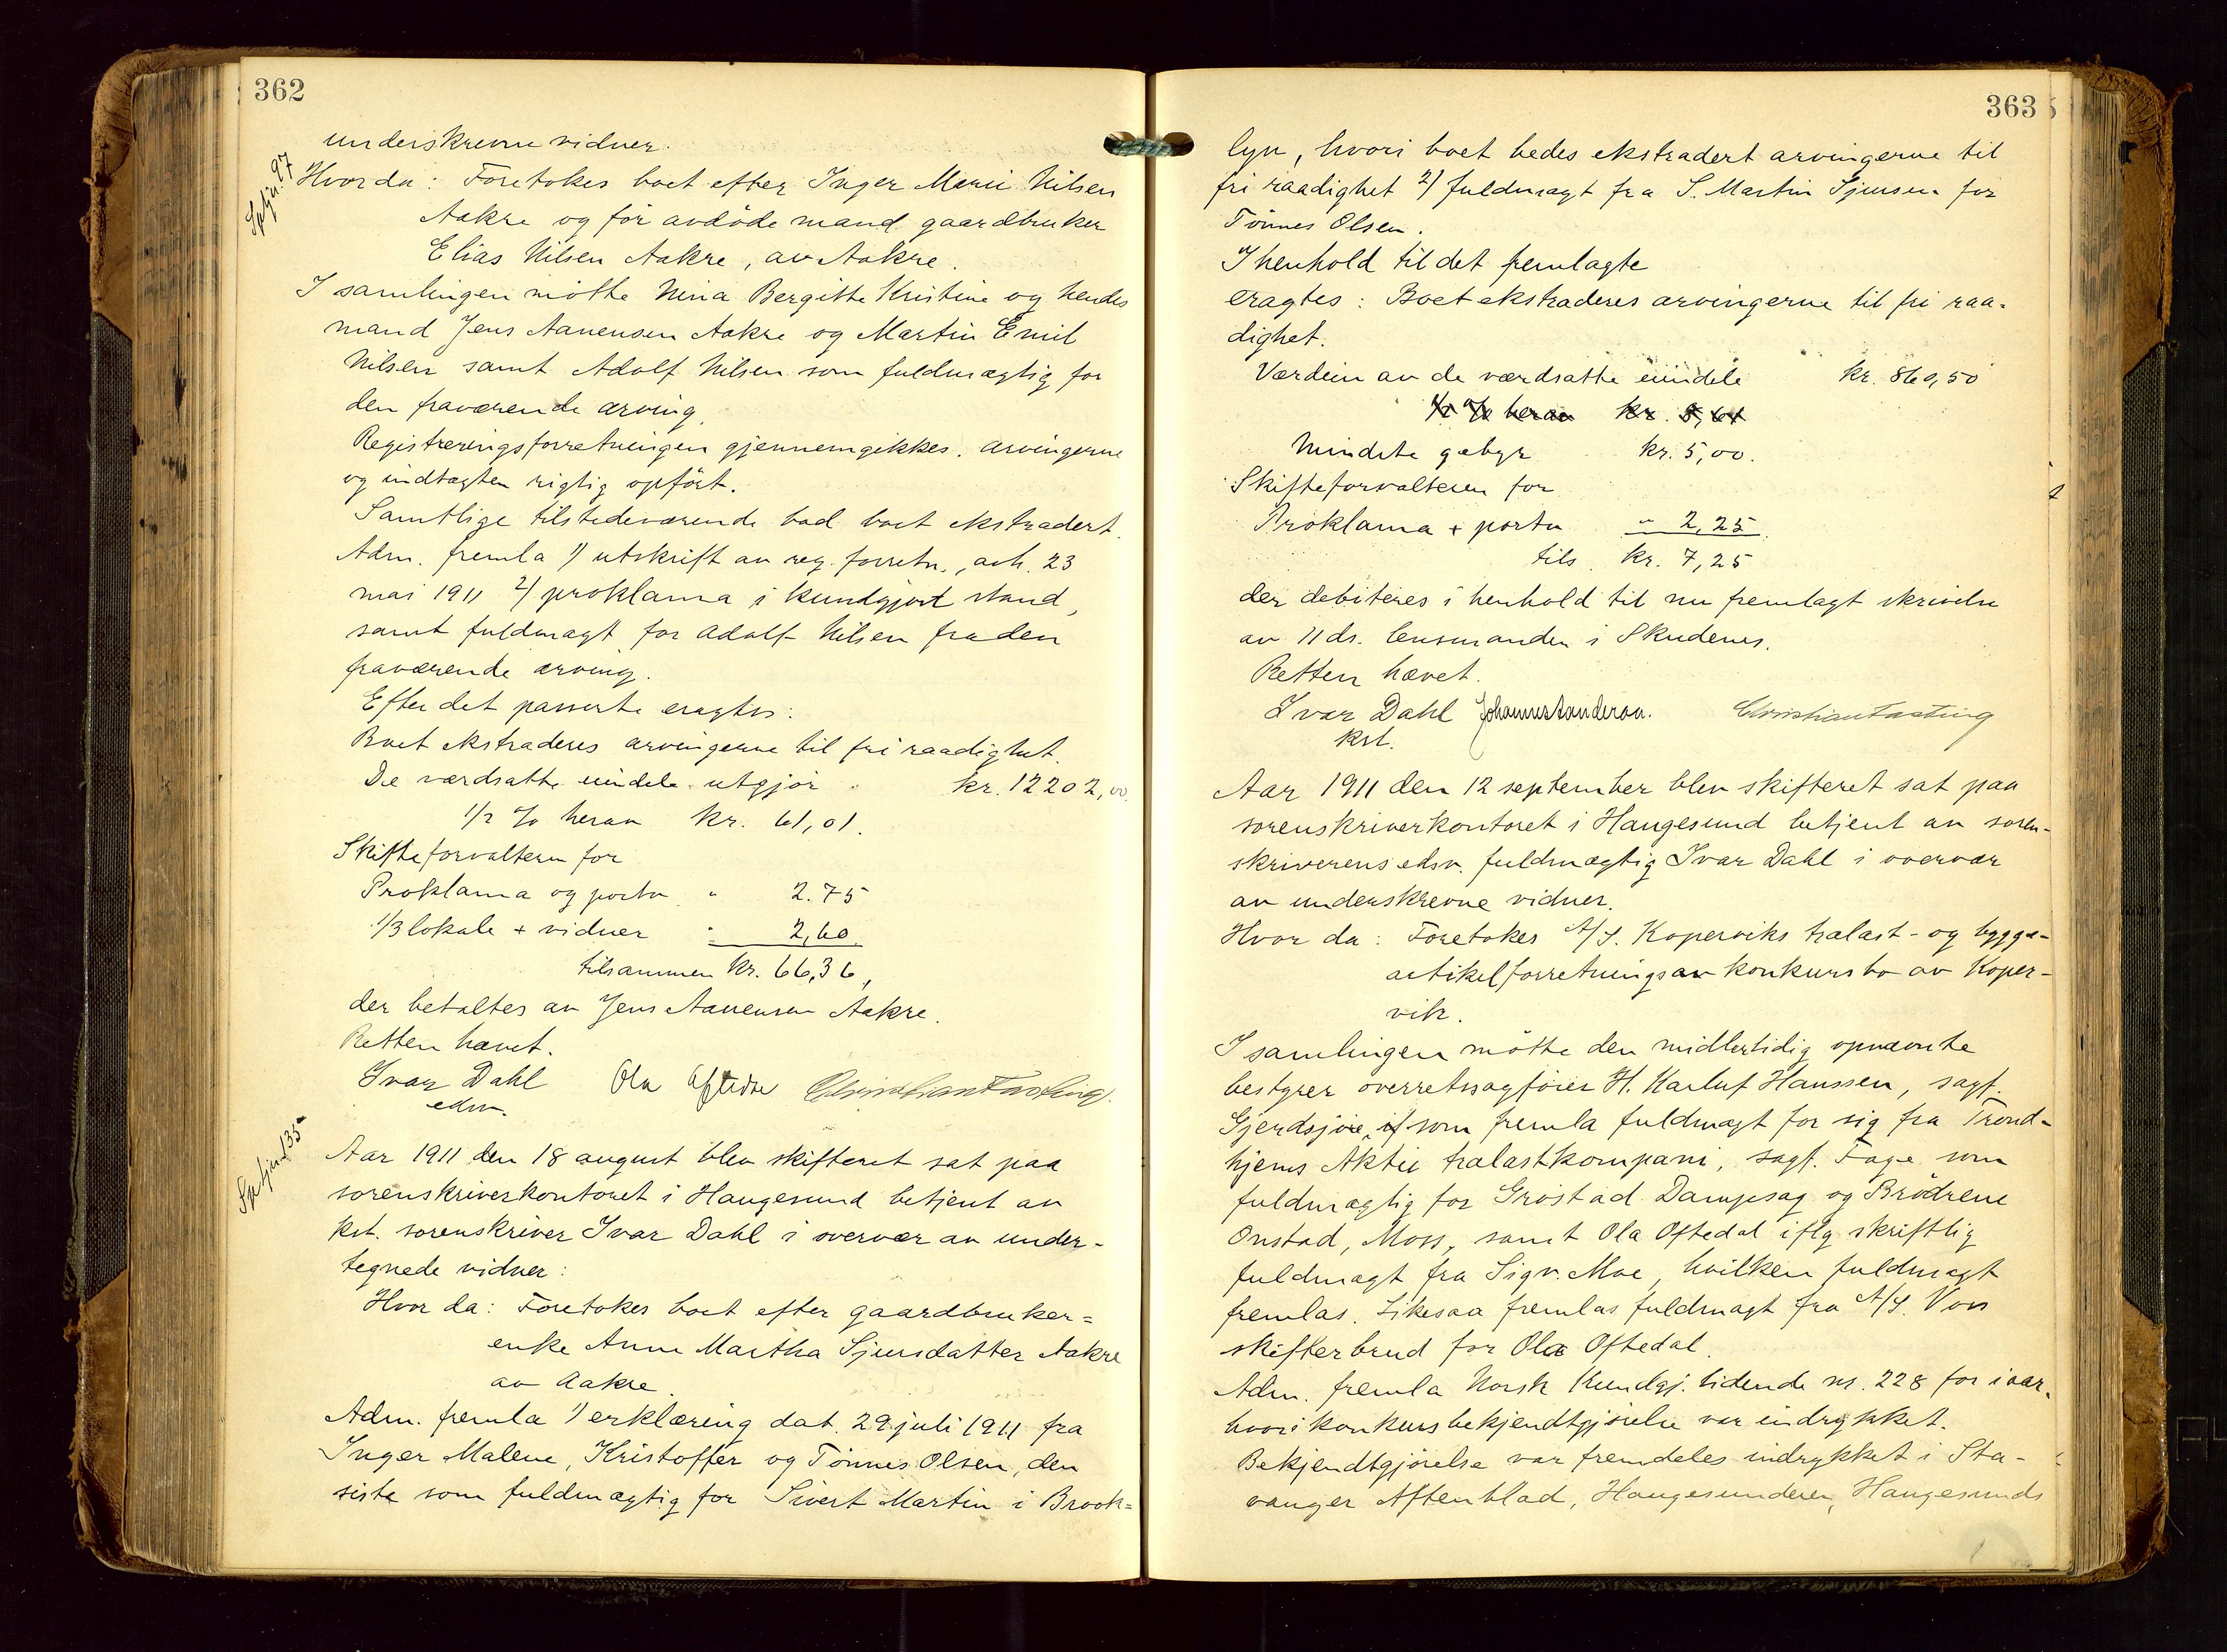 362
underskrevne vidner.
Hvor da: Foretokes boet efter Inger Marie Nilsen
Aakre og før avdøde mand gaardbruker
Elias Nilsen Aakre, av Aakre.
I samlingen møtte Nina Bergitte Kristine og hendes
mand Jens Aanensen Aakre og Martin Emil
Nilsen samt Adolf Nilsen som fuldmægtig for
den fraværende arving.
Registreringsforretningen gjennemgikkes. arvingerne
og indtægten rigtig opført.
Samtlige tilstedeværende bad boet ekstradert.
Adm. fremla 1) utskrift av reg. forretn., avh. 23
mai 1911 2) proklama i kundgjort stand,
samt fuldmagt for Adolf Nilsen fra den
fraværende arving.
Efter det passerte eragtes:
Boet ekstraderes arvingerne til fri raadighet.
De værdsatte eiendele utgjør kr. 12202,00.
1/2 % herav kr. 61,01.
Skifteforvalteren for
Proklama og porto " 2.75
1/3 lokale + vidner " 2,60
tilsammen kr. 66,36,
der betaltes av Jens Aanensen Aakre.
Retten hævet.
Ivar Dahl Ola Oftedal Christian Fasting.
edsv.
Aar 1911 den 18 august blev skifteret sat paa
sorenskriverkontoret i Haugesund betjent av
kst. sorenskriver Ivar Dahl i overvær av under-
tegnede vidner:
Hvor da: Foretokes boet efter gaardbruker=
enke Anne Martha Sjursdatter Aakre
av Aakre.
Adm. fremla 1) erklæring dat. 29. juli 1911 fra
Inger Malene, Kristoffer og Tønnes Olsen, den
siste som fuldmægtig for Sivert Martin i Brook=
363
lyn, hvori boet bedes ekstradert arvingerne til
fri raadighet 2) fuldmagt fra S. Martin Sjursen for
Tønnes Olsen.
I henhold til det fremlagte
eragtes: Boet ekstraderes arvingerne til fri raa-
dighet.
Værdien av de værdsatte eiendele kr. 860,50
1/2 % herav kr.
Mindste gebyr kr. 5,00.
Skifteforvalteren for
Proklama + porto " 2,25
tils. kr. 7,25
der debiteres i henhold til nu fremlagt skrivelse
av 11 ds. lensmanden i Skudenes.
Retten hævet.
Ivar Dahl Johannes Anderson. Christian Fasting
kst.
Aar 1911 den 12 september blev skifteret sat paa
sorenskriverkontoret i Haugesund betjent av soren-
skriverens edsv. fuldmægtig Ivar Dahl i overvær
av underskrevne vidner.
Hvor da: Foretokes A/S. Koperviks trælast- og bygge-
artikelforretnings konkursbo av Koper-
vik.
I samlingen møtte den midlertidig opnævnte
bestyrer overretssagfører H. Karluf Hanssen, sagf.
Gjerdsjøe, som fremla fuldmagt for sig fra Trond-
hjems Aktie trælastkompani, sagf. Fage som
fuldmægtig for Grøstad Dampsag og Brødrene
Onstad, Moss, samt Ola Oftedal iflg skriftlig
fuldmagt fra Sigv. Moe, hvilken fuldmagt
fremlas. Likesaa fremlas fuldmagt fra A/S. Voss
skiferbrud for Ola Oftedal.
Adm. fremla Norsk Kundgj. tidende nr. 228 for iaar,
hvori konkursbekjendtgjørelse var indrykket.
Bekjendtgjørelse var fremdeles indrykket i Sta-
vanger Aftenblad, Haugesunderen, Haugesunds